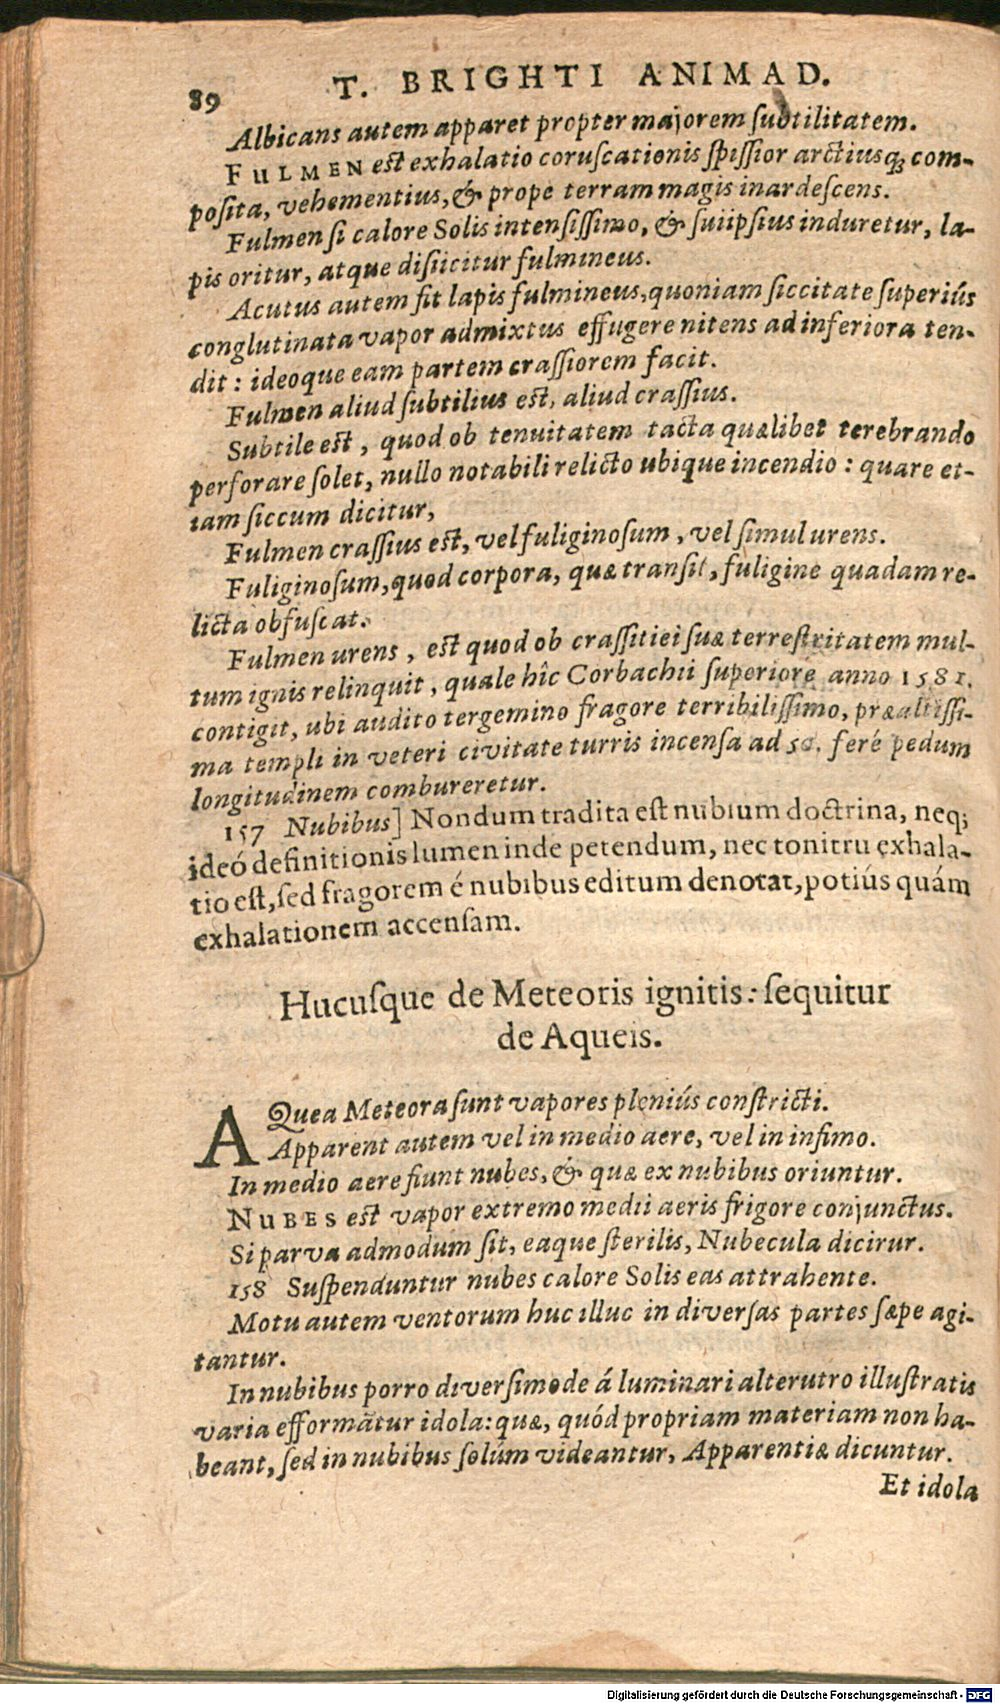 89 T. BRIGHTI ANIMAD.
Albicans autem apparet propter majorem ſubtilitatem.
FULMEN eſt exhalatio coruſcationis ſpiſſior arctiusq; com-
poſita, vehementius, & prope terram magis inardeſcens.
Fulmen ſi calore Solis intenſiſſimo, & ſuiipſius induretur, la-
pis oritur, atque diſiicitur fulmineus.
Acutus autem fit lapis fulmineus, quoniam ſiccitate ſuperiús
conglutinata vapor admixtus effugere nitens ad inferiora ten-
dit: ideoque eam partem craſſiorem facit.
Fulmen aliud ſubtilius eſt, aliud craſſius.
Subtile eſt, quod ob tenuitatem tacta quælibet terebrando
perforare ſolet, nullo notabili relicto ubique incendio: quare et-
iam ſiccum dicitur,
Fulmen craſſius eſt, vel fuliginoſum, vel ſimul urens.
Fuliginoſum, quod corpora, quæ tranſit, fuligine quadam re-
licta obfuſcat.
Fulmen urens, eſt quod ob craſſitiei ſuæ terreſtritatem mul-
tum ignis relinquit, quale hîc Corbachii ſuperiore anno 1581.
contigit, ubi audito tergemino fragore terribiliſſimo, præaltiſſi-
ma templi in veteri civitate turris incenſa ad 50. feré pedum
longitudinem combureretur.
157 Nubibus] Nondum tradita eſt nubium doctrina, neq;
ideó definitionis lumen inde petendum, nec tonitru exhala-
tio eſt, ſed fragorem é nubibus editum denotat, potiús quám
exhalationem accenſam.
Hucuſque de Meteoris ignitis: ſequitur
de Aqueis.
AQuea Meteora ſunt vapores pleniús conſtricti.
Apparent autem vel in medio aere, vel in infimo.
In medio aere fiunt nubes, & quæ ex nubibus oriuntur.
NUBES eſt vapor extremo medii aeris frigore conjunctus.
Si parva admodum ſit, eaque ſterilis, Nubecula dicirur.
158 Suſpenduntur nubes calore Solis eas attrahente.
Motu autem ventorum huc illuc in diverſas partes ſæpe agi-
tantur.
In nubibus porro diverſimode á luminari alterutro illuſtratis
varia efformãtur idola: quæ, quód propriam materiam non ha-
beant, ſed in nubibus ſolúm videantur, Apparentiæ dicuntur.
Et idola
Digitalisierung gefördert durch die Deutsche Forschungsgemeinschaft - DFG